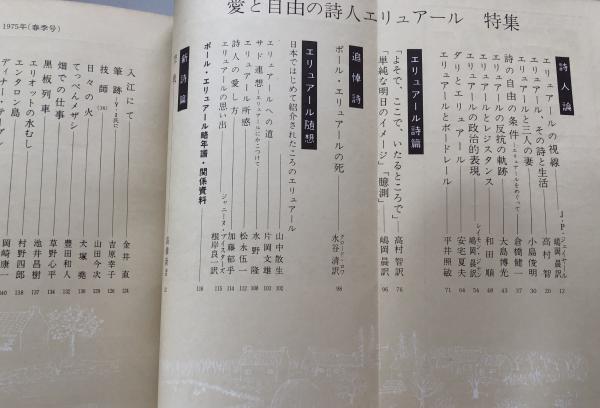 1975年(春季号)
愛と自由の詩人エリュアール 特集
詩人論
エリュアールの視線 J・P・ジュイヤール 嶋岡晨訳 12
エリュアール、その詩と生活 高村智 20
エリュアールと三人の妻 小島俊明 30
詩の自由の条件—エリュアールをめぐって— 倉橋健一 37
エリュアールの反抗の軌跡 大島博光 43
エリュアールとレジスタンス 和田順 48
エリュアールの政治的表現 レイモン・ジャン 嶋岡晨訳 54
ダリとエリュアール 安宅夏夫 64
エリュアールとボードレール 平井照敏 71
エリュアール詩篇
「よそで、ここで、いたるところで」 高村智訳 76
「単純な明日のイメージ」「臆測」 嶋岡晨訳 96
追悼詩
ポール・エリュアールの死 クロード・ロワ 水谷清訳 98
エリュアール随想
日本ではじめて紹介されたころのエリュアール 山中散生 102
エリュアールへの道 片岡文雄
サド連想—エリュアールにかこつけて 水野隆
エリュアール所感 加藤郁乎
詩人の愛し方 松永伍一 114
エリュアールの思い出 ジャニーヌ 根岸良一訳 115
ポール・エリュアール略年譜・関係資料 116
新詩篇
入江にて 金井直 124
筆跡 吉原幸子 126
技師 山田今次
日々の火 犬塚堯
てっぺんメザシ 豊田和人
畑での仕事 草野心平 134
黒板列車 池井昌樹 137
エリオットの水むし 村野四郎 138
エンタロン島 岡崎康一 140